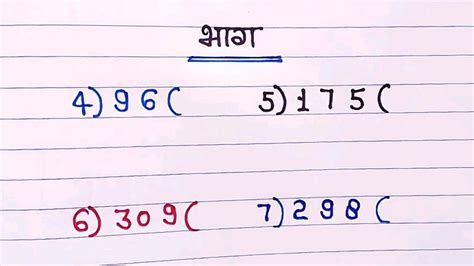 भाग
4) 96 (    5) 175 (
6) 309 (    7) 298 (